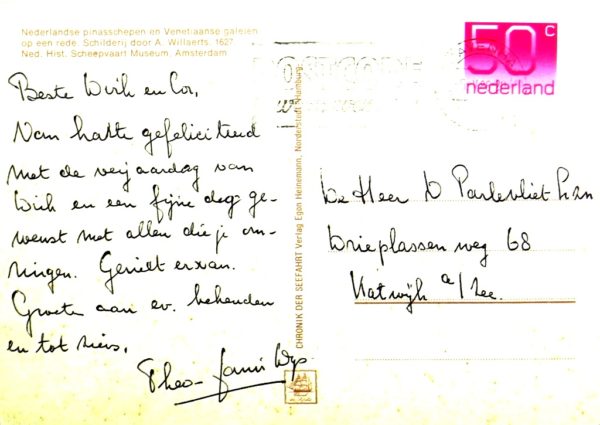 Nederlandse pinasschepen en Venetiaanse galeien
op een rede. Schilderij door A. Willaerts. 1627.
Ned. Hist. Scheepvaart Museum, Amsterdam
Beste Wich en Cor,
Van harte gefeliciteerd
met de verjaardag van
Wich en een fijne dag ge-
wenst met allen die je om-
ringen. Geniet ervan.
Groeten aan ev. bekenden
en tot ziens,
Theo-
CHRONIK DER SEEFAHRT Verlag Egon Heinemann, Norderstedt, Hamburg
50 c
nederland
POSTCODE
De Heer D Parlevliet
Drieplassenweg 68
Katwijk a/zee.